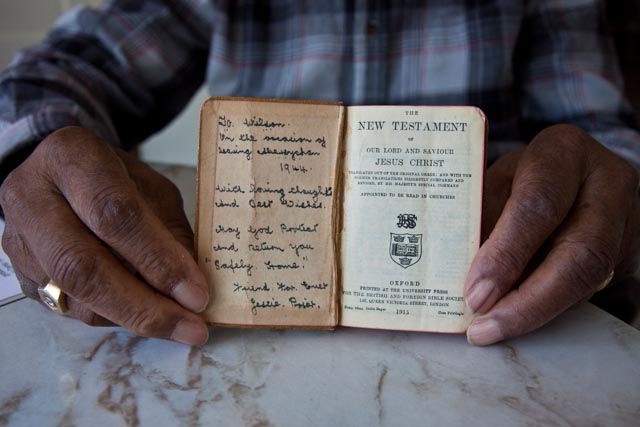 To Wilson.
On the occasion of
leaving
1944
With loving thoughts
and Best Wishes.
May God Protect
and return you
"Safely Home."
Friend For Ever
Leslie.
THE
NEW TESTAMENT
OF
OUR LORD AND SAVIOUR
JESUS CHRIST
TRANSLATED OUT OF THE ORIGINAL GREEK: AND WITH THE
FORMER TRANSLATIONS DILIGENTLY COMPARED AND
REVISED, BY HIS MAJESTY'S SPECIAL COMMAND
APPOINTED TO BE READ IN CHURCHES
OXFORD
PRINTED AT THE UNIVERSITY PRESS
FOR THE BRITISH AND FOREIGN BIBLE SOCIETY
146, QUEEN VICTORIA STREET, LONDON
1915
Cum Privilegio